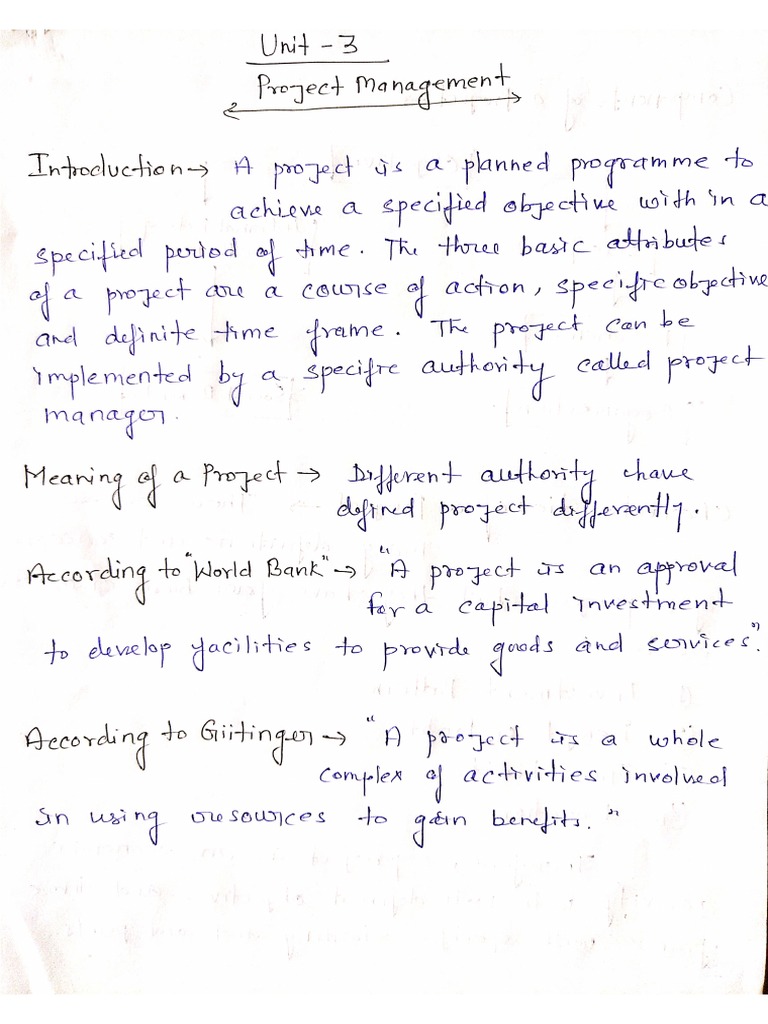 Unit - 3
Project Management
Introduction → A project is a planned programme to
achieve a specified objective with in a
specified period of time. The three basic attributes
of a project are a course of action, specific objective
and definite time frame. The project can be
implemented by a specific authority called project
manager.
Meaning of a Project → Different authority have
defined project differently.
According to "World Bank" → "A project is an approval
for a capital investment
to develop facilities to provide goods and services"
According to Giitinger → "A project is a whole
complex of activities involved
in using resources to gain benefits."